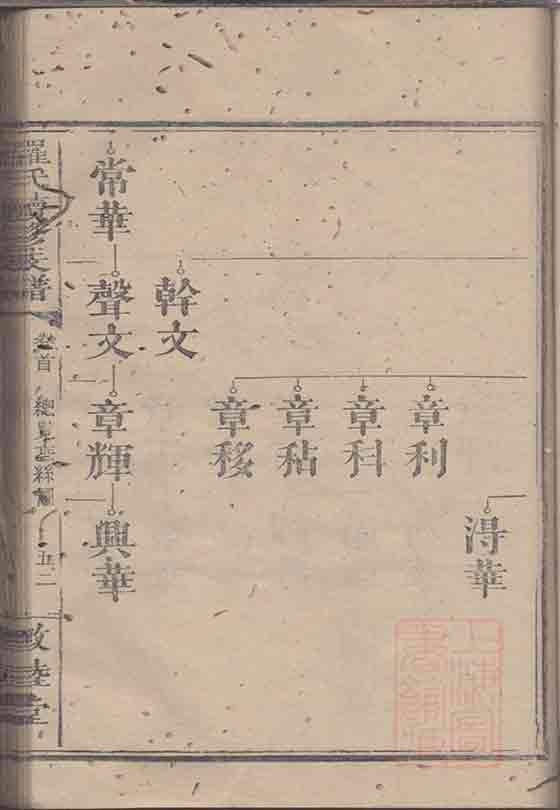 淂華
章利
章科
章秥
章移
幹文
常華
聲文
章輝
興華
羅氏續修支譜
卷首
五二
敦睦堂
上海圖書館藏